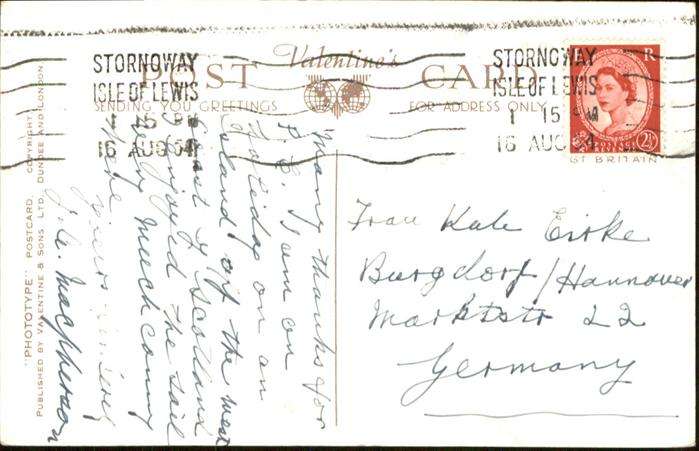 STORNOWAY
ISLE OF LEWIS
1 15 PM
16 AUG 54
STORNOWAY
ISLE OF LEWIS
1 15 PM
16 AUG
Valentine's
POST CARD
SENDING YOU GREETINGS
FOR ADDRESS ONLY
E R
POSTAGE
REVENUE
2½
GT BRITAIN
"PHOTOTYPE" POSTCARD. COPYRIGHT
PUBLISHED BY VALENTINE & SONS LTD. DUNDEE AND LONDON
Many thanks for
P.C. I am on
holiday on an
island off the west
coast of Scotland
enjoyed the sail
very much coming
here
yours sincerely
Macpherson
Frau Kate
Burgdorf/Hannover
Marktstr 22
Germany